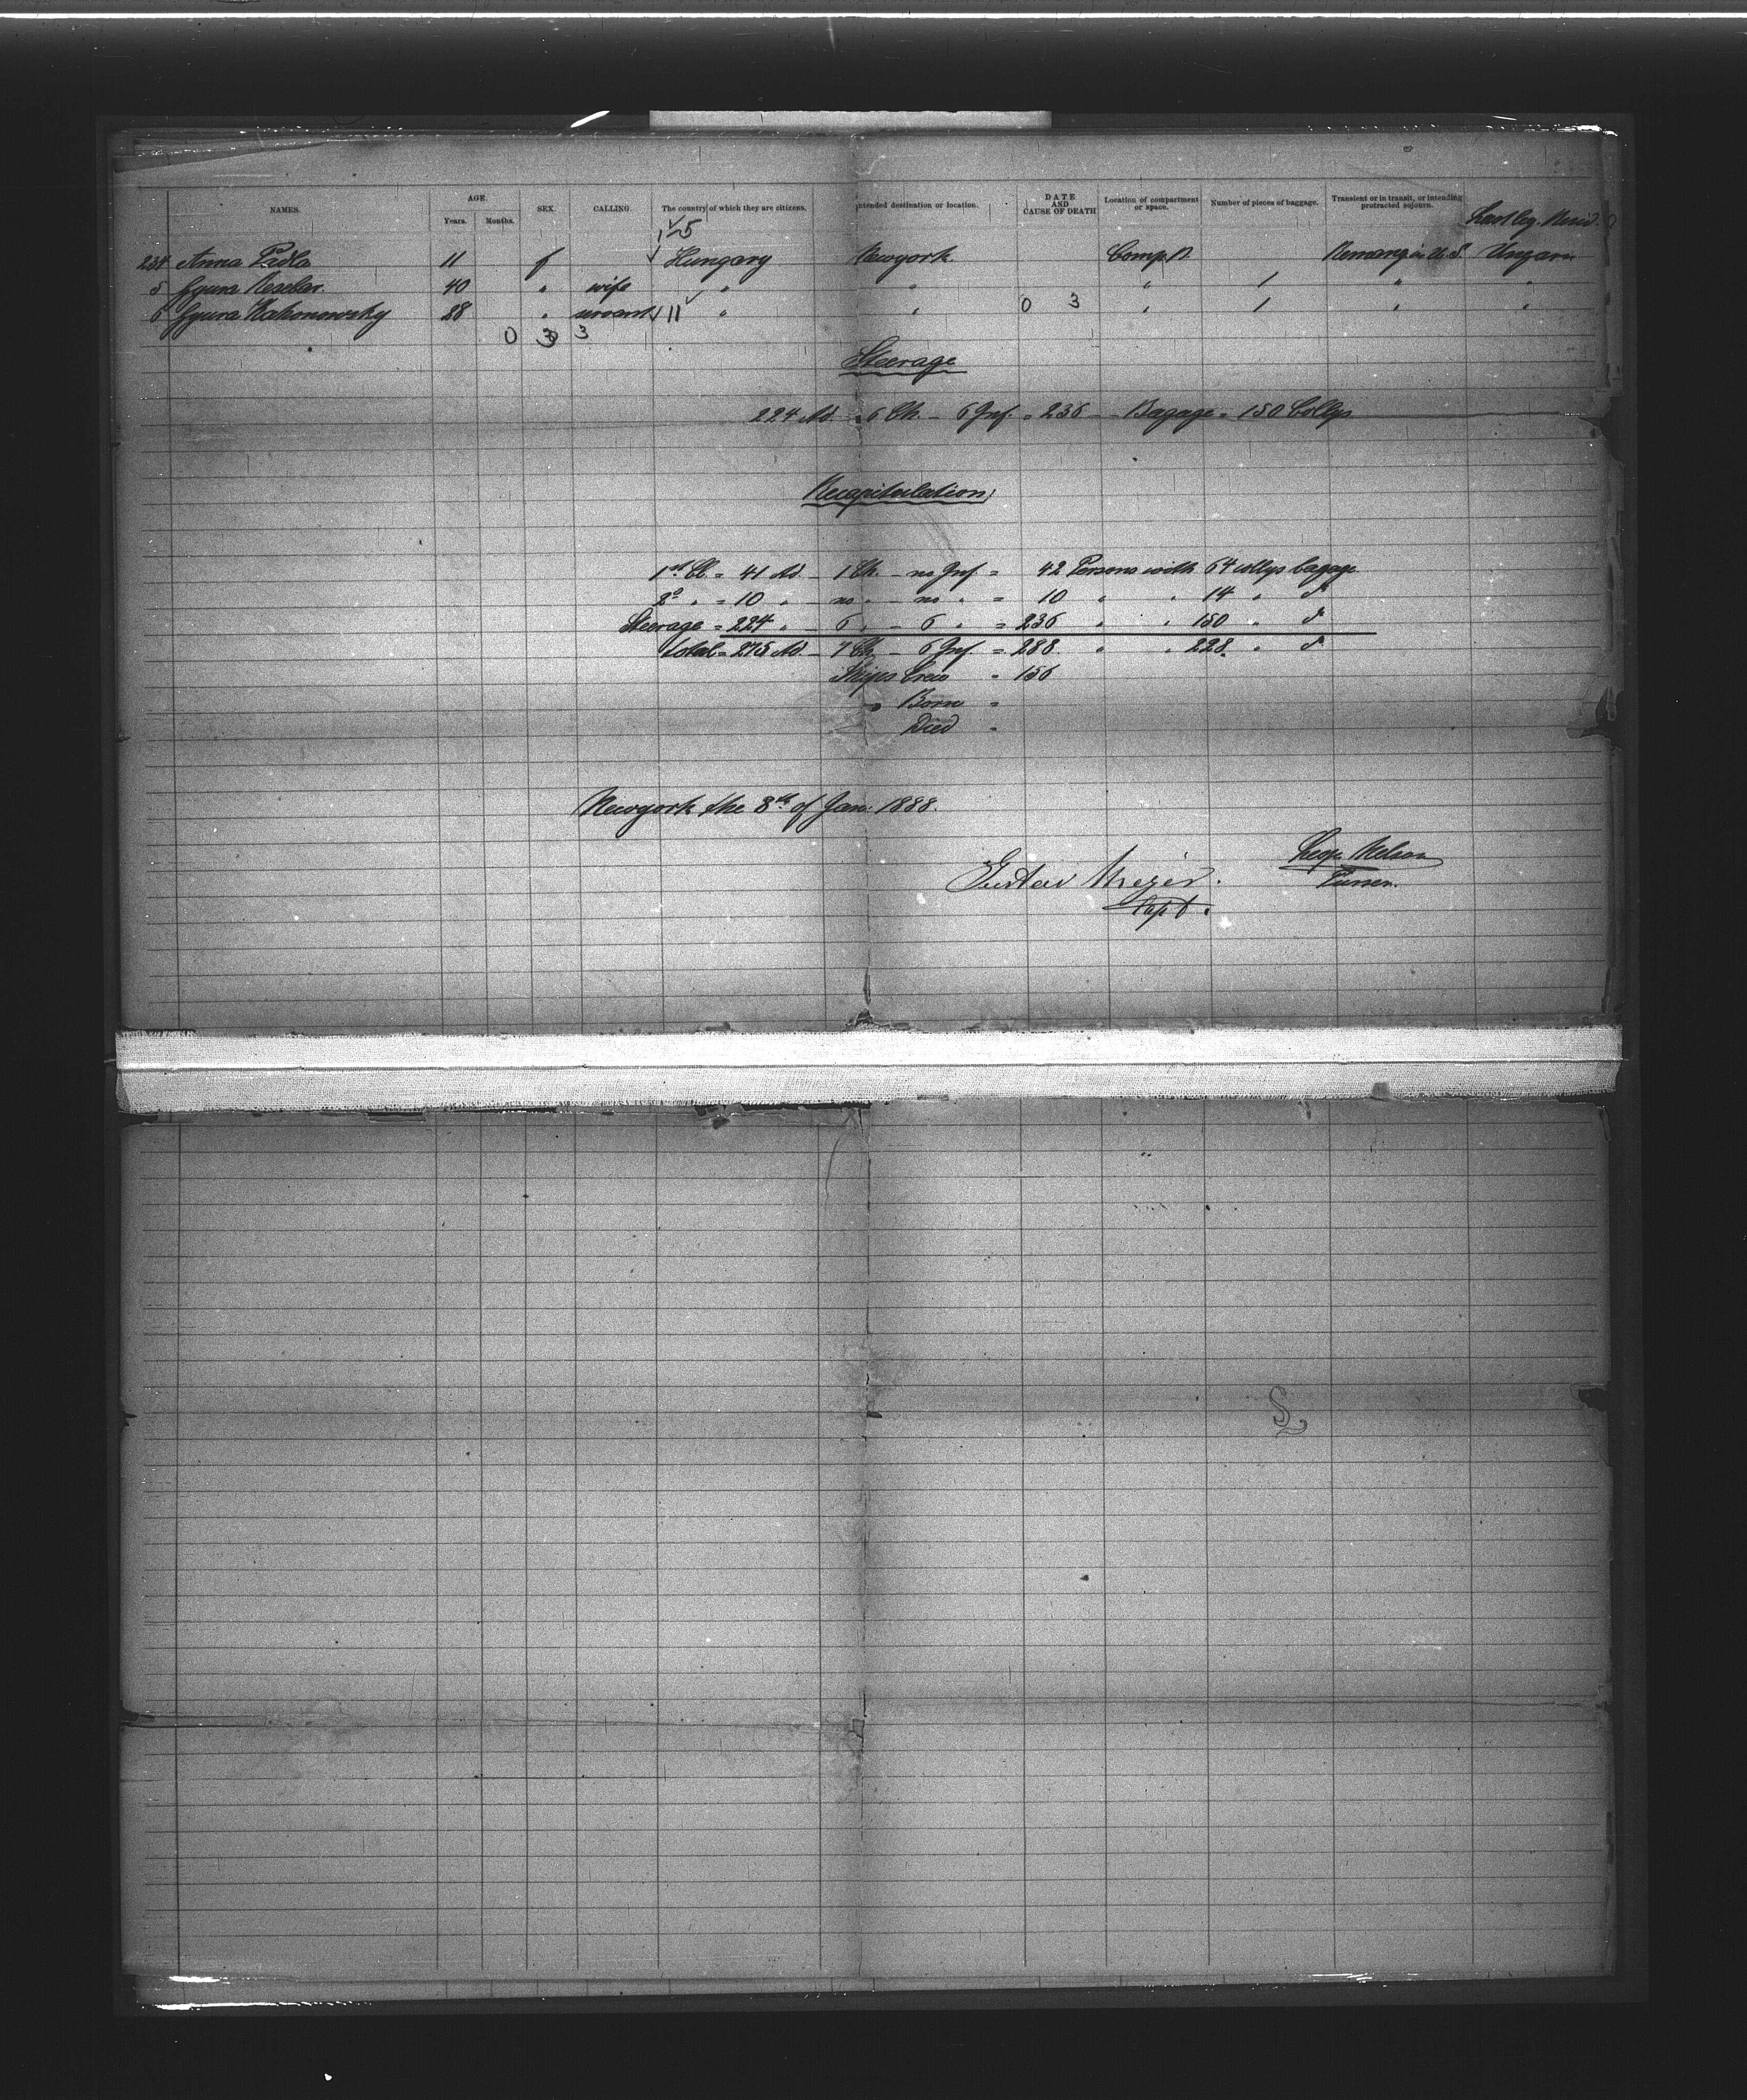 NAMES. AGE. Years. Months. SEX. CALLING The country of which they are citizens. Intended destination or location. DATE AND CAUSE OF DEATH Location of compartment or space. Number of pieces of baggage. Transient or in transit, or intending protracted sojourn. Last leg. Resid.
15
234 Anna Padla 11 f Hungary Newyork Comp. D. Remaing in U. S. Ungarn
5 Gyura 40 " wife " " " 1 " "
6 Gyura 28 " servant 11 " " 0 3 " 1 " "
0 3 3
Steerage
224 Ad. - 6 Ch. - 6 Inf. = 236 - Bagage = 150 Collys
Recapitulation
1st Cl. = 41 Ad. - 1 Ch. - no Inf. = 42 Persons with 64 collys bagage
2d " = 10 " - no " - no " = 10 " " 14 " d
Steerage = 224 " - 6 " - 6 " = 236 " " 150 " d
total = 275 Ad. - 7 Ch. - 6 Inf. = 288 " " 228 " d
Ships Crew = 156
" Born =
Died =
Newyork the 8th of Jan: 1888.
Gustav Meyer. Nelson
Capt. Purser.